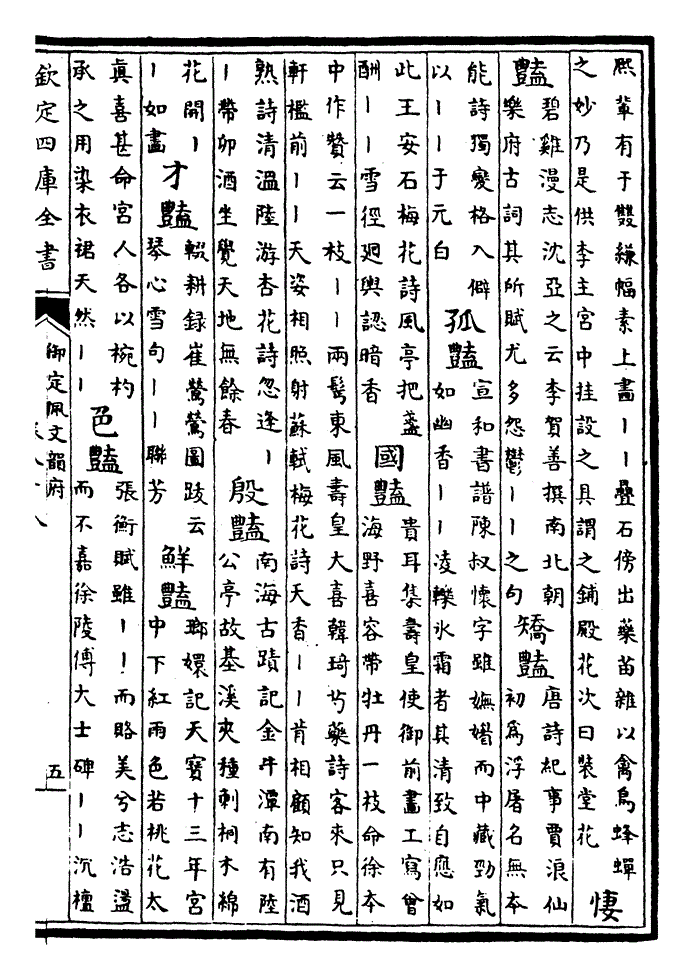 熙輩有于雙縑幅素上畫丨丨疊石傍出藥苗雜以禽鳥蜂蟬
之妙乃是供李主宮中挂設之具謂之鋪殿花次曰裝堂花
悽
豔
碧雞漫志沈亞之云李賀善撰南北朝
樂府古詞其所賦尤多怨鬱丨丨之句
矯豔
唐詩紀事賈浪仙
初為浮屠名無本
能詩獨變格入僻
以丨丨于元白
孤豔
宣和書譜陳叔懷字雖嫵媚而中藏勁氣
如幽香丨丨凌轢氷霜者其清致自應如
此王安石梅花詩風亭把盞
酬丨丨雪徑廻輿認暗香
國豔
貴耳集壽皇使御前畫工寫曾
海野喜容帶牡丹一枝命徐本
中作贊云一枝丨丨兩鬂東風壽皇大喜韓琦芍藥詩客來只見
軒檻前丨丨天姿相照射蘇軾梅花詩天香丨丨肯相顧知我酒
熟詩清溫陸游杏花詩忽逢丨
丨帶卯酒坐覺天地無餘春
殷豔
南海古蹟記金牛潭南有陸
公亭故基溪夾種刺桐木綿
花開丨
丨如畫
才豔
輟耕録崔鶯鶯圖跋云
琴心雪句丨丨聯芳
鮮豔
瑯嬛記天寶十三年宮
中下紅雨色若桃花太
真喜甚命宮人各以椀杓
承之用染衣裙天然丨丨
色豔
張衡賦雖丨丨而賂美兮志浩盪
而不嘉徐陵傅大士碑丨丨沉檀
欽定四庫全書
御定佩文韻府
五